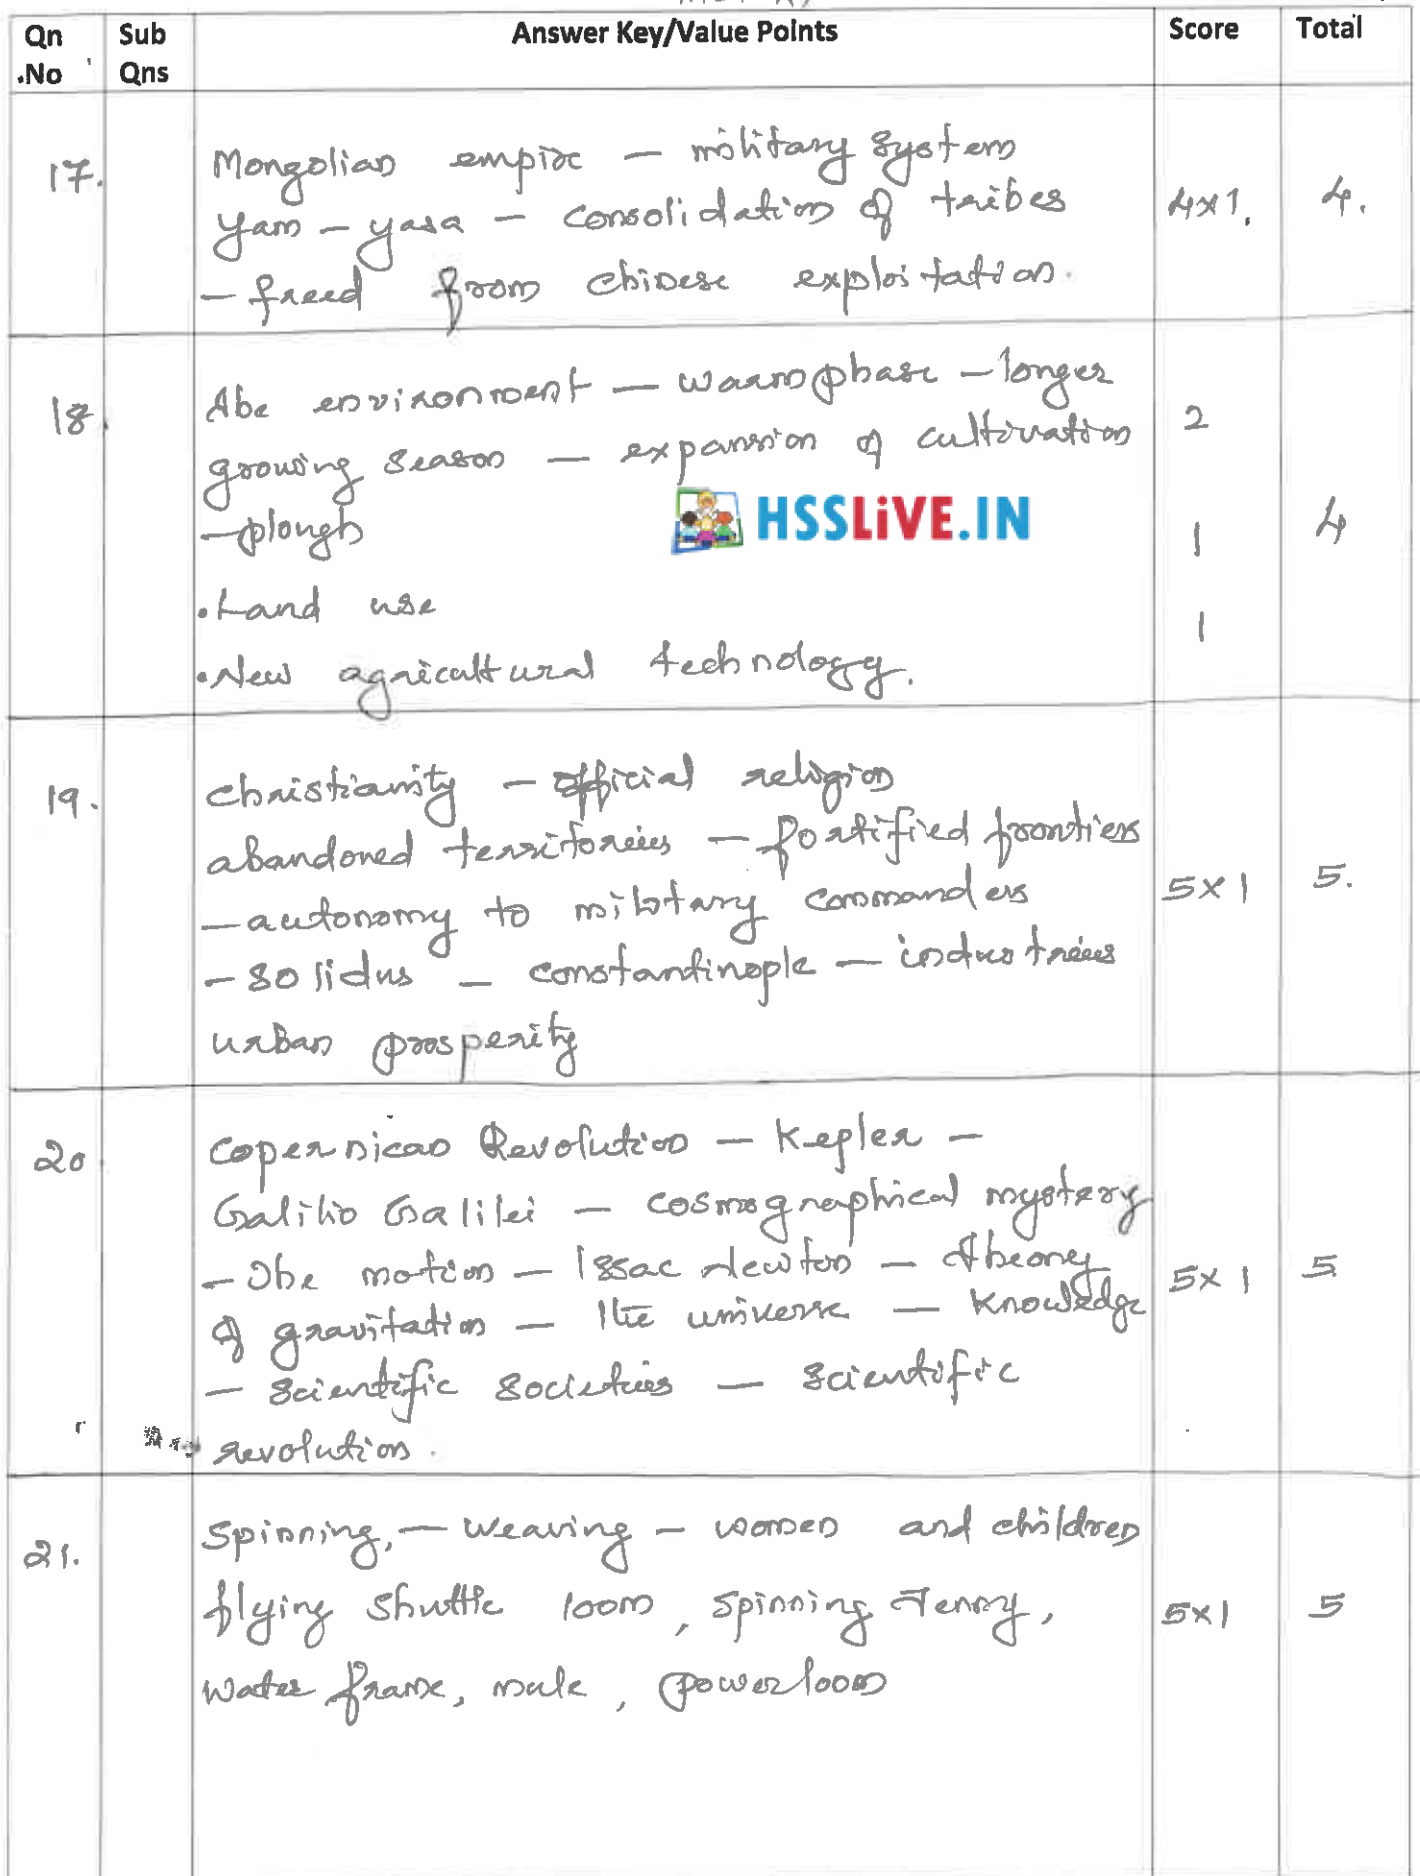 Qn Sub Answer Key/Value Points Score Total
.No Qns
17. Mongolian empire — military system
yam — yasa — consolidation of tribes 4x1. 4.
— freed from chinese exploitation.
18. The environment — warm phase — longer
growing season — expansion of cultivation 2
— plough
HSSLiVE.IN
1 4
• Land use
1
• New agricultural technology.
19. christianity — official religion
abandoned territories — fortified frontiers
— autonomy to military commanders 5x1 5.
— solidus — constantinople — industries
urban prosperity
20 copernican Revolution — Kepler —
Galilio Galilei — cosmographical mystery
— The motion — Issac Newton — Theory 5x1 5
of gravitation — the universe — knowledge
— scientific societies — scientific
revolution.
21. Spinning, — weaving — women and children
flying shuttle loom, spinning Jenny, 5x1 5
water frame, mule, powerloom